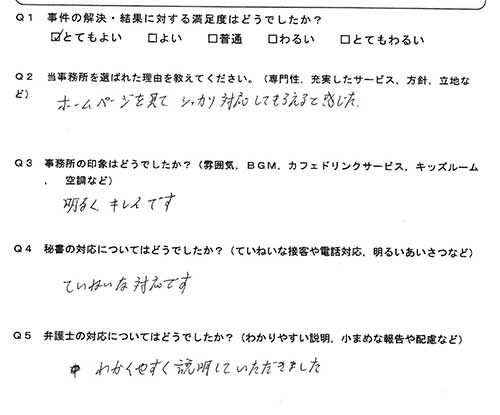 Q1 事件の解決・結果に対する満足度はどうでしたか？
☑とてもよい □よい □普通 □わるい □とてもわるい
Q2 当事務所を選ばれた理由を教えてください。（専門性，充実したサービス，方針，立地な
ど）
ホームページを見て シッカリ対応してもらえると感じた.
Q3 事務所の印象はどうでしたか？（雰囲気，ＢＧＭ，カフェドリンクサービス，キッズルーム
， 空調など）
明るく キレイです
Q4 秘書の対応についてはどうでしたか？（ていねいな接客や電話対応，明るいあいさつなど）
ていねいな対応です
Q5 弁護士の対応についてはどうでしたか？（わかりやすい説明，小まめな報告や配慮など）
わかりやすく説明していただきました